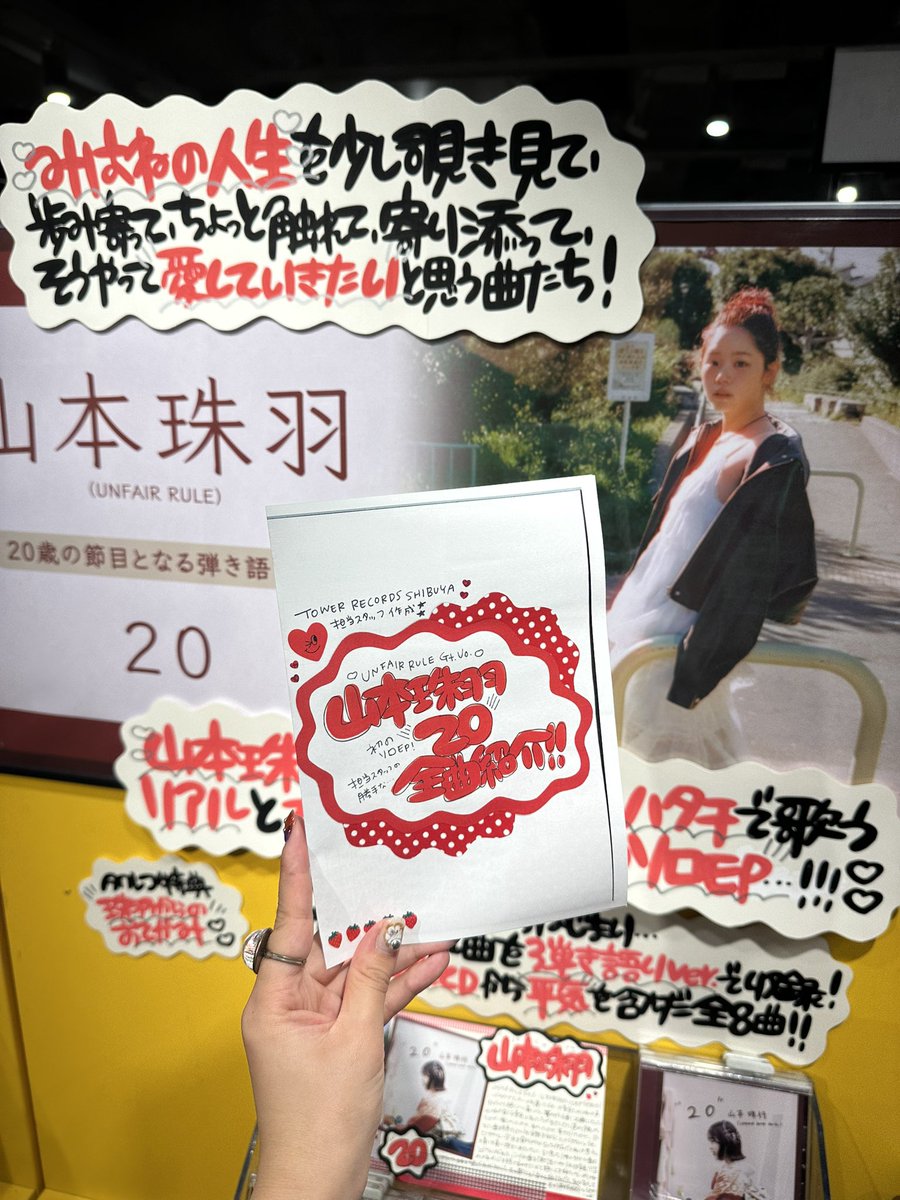 みはねの人生を少し覗き見て、
歩み寄って、ちょっと触れて、寄り添って、
そうやって愛していきたいと思う曲たち!
山本珠羽
(UNFAIR RULE)
20歳の節目となる弾き語
20
TOWER RECORDS SHIBUYA
担当スタッフ作成
UNFAIR RULE Gt.Vo.
山本珠羽
初の
ソロEP!
20
担当スタッフの
勝手な
全曲紹介!!
山本珠
リアルと
ハタチで歌う
ソロEP...!!!
タワレコ特典
珠羽からの
おてがみ
曲を弾き語りver.で収録!
CDから平気を含む全8曲!!
山本珠羽
20
20 山本珠羽
20 山本珠羽
(UNFAIR RULE)